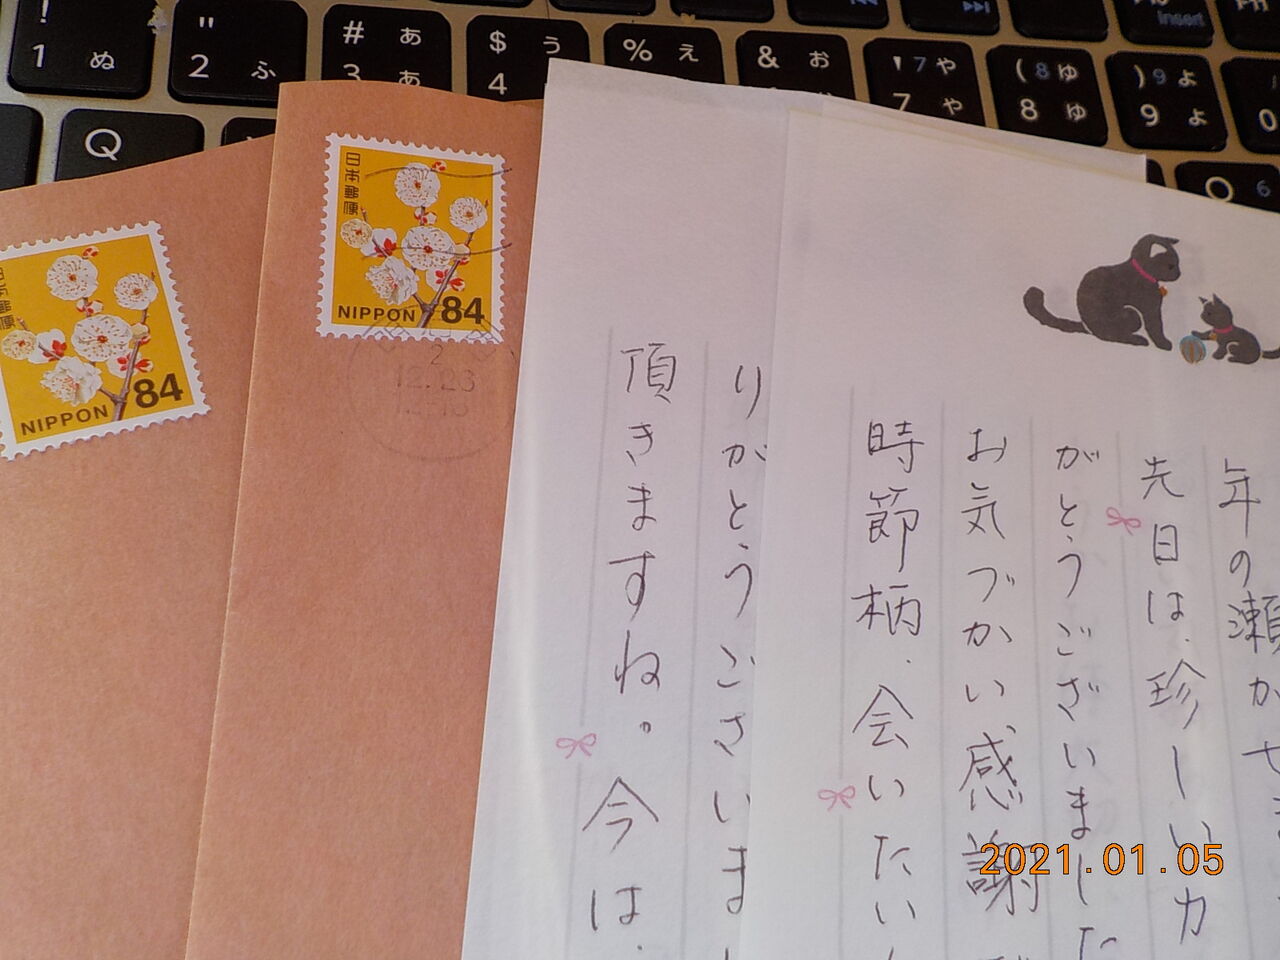 ! 1 ぬ
" 2 ふ
# あ 3 あ
$ う 4
% え
& お
' 7 や 7 や
( 8 ゆ 8 ゆ
) 9 よ 9 よ
insert
0
Q
O 6
日本郵便
NIPPON 84
日本郵便
NIPPON 84
2
12.23
年の瀬か
先日は、珍しいカ
がとうございました
お気づかい、感謝
時節柄、会いたい
りがとうございまし
頂きますね。今は、
2021.01.05